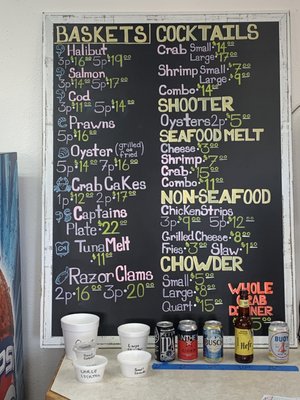 BASKETS
Halibut
3p $16⁰⁰ 5p $19⁰⁰
Salmon
3p $14⁰⁰ 5p $17⁰⁰
Cod
3p $11⁰⁰ 5p $14⁰⁰
Prawns
5p $16⁰⁰
Oyster (grilled) or fried
5p $14⁰⁰ 7p $16⁰⁰
Crab Cakes
1p $12⁰⁰ 2p $17⁰⁰
Captains
Plate $22⁰⁰
Tuna Melt
$11⁰⁰
Razor Clams
2p $16⁰⁰ 3p $20⁰⁰
COCKTAILS
Crab Small $14⁰⁰
Large $17⁰⁰
Shrimp Small $7⁰⁰
Large $9⁰⁰
Combo $14⁰⁰
SHOOTER
Oysters 2p $5⁰⁰
SEAFOOD MELT
Cheese $3⁰⁰
Shrimp $7⁰⁰
Crab $15⁰⁰
Combo $11⁰⁰
NON-SEAFOOD
Chicken Strips
3p $9⁰⁰ 5p $12⁰⁰
Grilled Cheese $8⁰⁰
Fries $3⁰⁰ Slaw $1⁰⁰
CHOWDER
Small $5⁰⁰
Large $8⁰⁰
Quart $15⁰⁰
WHOLE
CRAB
DINNER
IPA
BUSCH
Hefe